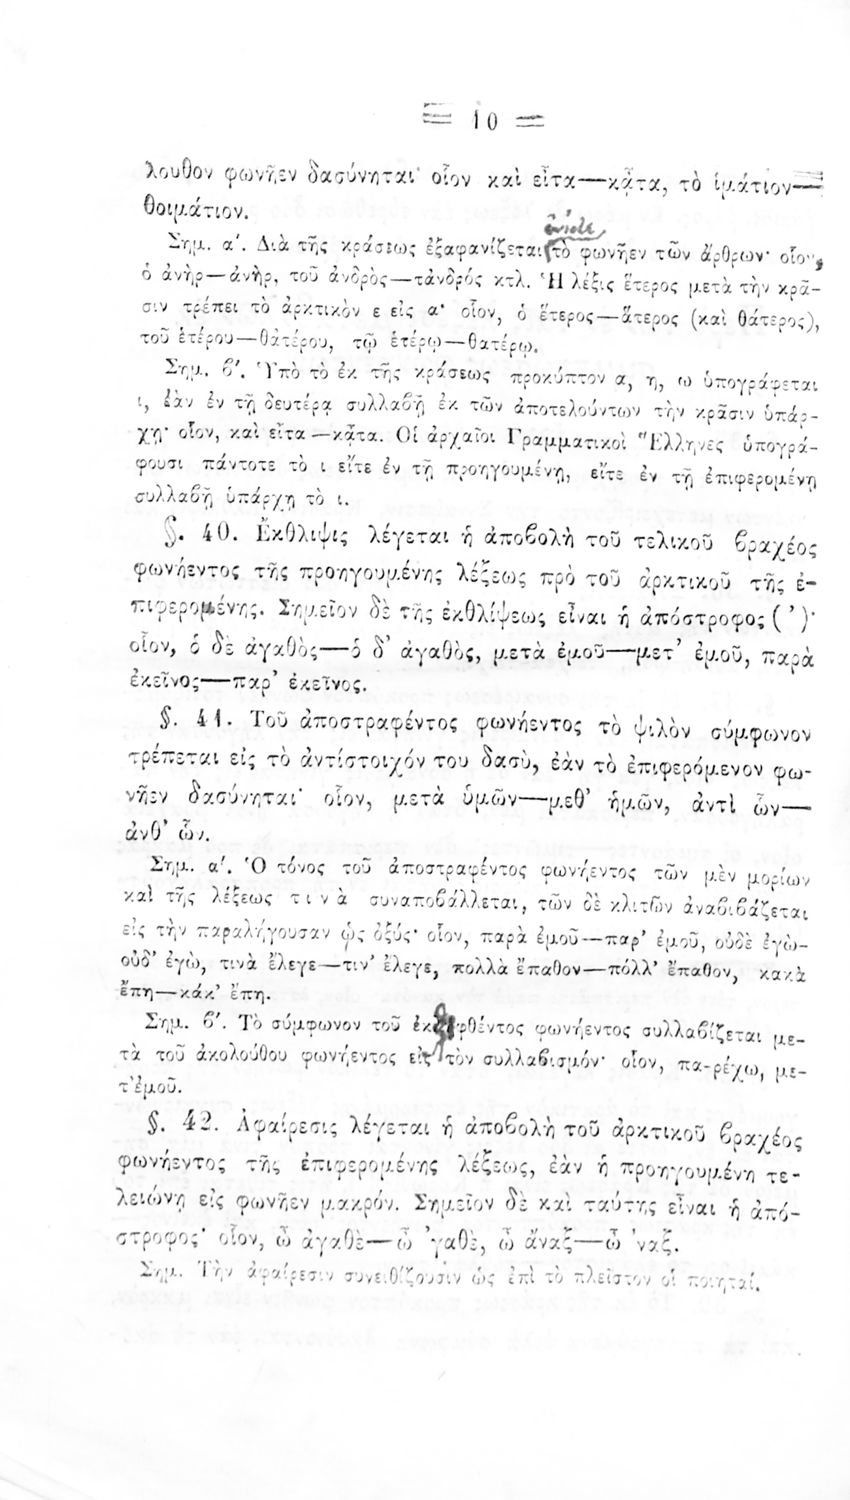 = 10 =
λουθον φωνῆεν δασύνηται· οἷον καὶ εἶτα—κᾆτα, τὸ ἱμάτιον—
θοιμάτιον.
Σημ. α΄. Διὰ τῆς κράσεως ἐξαφανίζεται τὸ φωνῆεν τῶν ἄρθρων· οἷον,
ὁ ἀνὴρ—ἁνὴρ, τοῦ ἀνδρὸς—τἀνδρός κτλ. Ἡ λέξις ἕτερος μετὰ τὴν κρᾶ-
σιν τρέπει τὸ ἀρκτικὸν ε εἰς α· οἷον, ὁ ἕτερος—ἅτερος (καὶ θάτερος),
τοῦ ἑτέρου—θατέρου, τῷ ἑτέρῳ—θατέρῳ.
Σημ. β΄. Ὑπὸ τὸ ἐκ τῆς κράσεως προκύπτον α, η, ω ὑπογράφεται
ι, ἐὰν ἐν τῇ δευτέρᾳ συλλαβῇ ἐκ τῶν ἀποτελούντων τὴν κρᾶσιν ὑπάρ-
χῃ· οἷον, καὶ εἶτα—κᾆτα. Οἱ ἀρχαῖοι Γραμματικοὶ Ἕλληνες ὑπογρά-
φουσι πάντοτε τὸ ι εἴτε ἐν τῇ προηγουμένῃ, εἴτε ἐν τῇ ἐπιφερομένῃ
συλλαβῇ ὑπάρχῃ τὸ ι.
§. 40. Ἔκθλιψις λέγεται ἡ ἀποβολὴ τοῦ τελικοῦ βραχέος
φωνήεντος τῆς προηγουμένης λέξεως πρὸ τοῦ ἀρκτικοῦ τῆς ἐ-
πιφερομένης. Σημεῖον δὲ τῆς ἐκθλίψεως εἶναι ἡ ἀπόστροφος (’)·
οἷον, ὁ δὲ ἀγαθὸς—ὁ δ’ ἀγαθὸς, μετὰ ἐμοῦ—μετ’ ἐμοῦ, παρὰ
ἐκεῖνος—παρ’ ἐκεῖνος.
§. 41. Τοῦ ἀποστραφέντος φωνήεντος τὸ ψιλὸν σύμφωνον
τρέπεται εἰς τὸ ἀντίστοιχόν του δασὺ, ἐὰν τὸ ἐπιφερόμενον φω-
νῆεν δασύνηται· οἷον, μετὰ ὑμῶν—μεθ’ ἡμῶν, ἀντὶ ὧν—
ἀνθ’ ὧν.
Σημ. α΄. Ὁ τόνος τοῦ ἀποστραφέντος φωνήεντος τῶν μὲν μορίων
καὶ τῆς λέξεως τινὰ συναποβάλλεται, τῶν δὲ κλιτῶν ἀναβιβάζεται
εἰς τὴν παραλήγουσαν ὡς ὀξύς· οἷον, παρὰ ἐμοῦ—παρ’ ἐμοῦ, οὐδὲ ἐγὼ—
οὐδ’ ἐγὼ, τινὰ ἔλεγε—τιν’ ἔλεγε, πολλὰ ἔπαθον—πόλλ’ ἔπαθον, κακὰ
ἔπη—κάκ’ ἔπη.
Σημ. β΄. Τὸ σύμφωνον τοῦ φωνήεντος συλλαβίζεται με-
τὰ τοῦ ἀκολούθου φωνήεντος εἰς τὸν συλλαβισμόν· οἷον, πα-ρέχω, με-
τ’ἐμοῦ.
§. 42. Ἀφαίρεσις λέγεται ἡ ἀποβολὴ τοῦ ἀρκτικοῦ βραχέος
φωνήεντος τῆς ἐπιφερομένης λέξεως, ἐὰν ἡ προηγουμένη τε-
λειώνῃ εἰς φωνῆεν μακρόν. Σημεῖον δὲ καὶ ταύτης εἶναι ἡ ἀπό-
στροφος· οἷον, ὦ ἀγαθὲ—ὦ ’γαθὲ, ὦ ἄναξ—ὦ ’ναξ.
Σημ. Τὴν ἀφαίρεσιν συνειθίζουσιν ὡς ἐπὶ τὸ πλεῖστον οἱ ποιηταί.